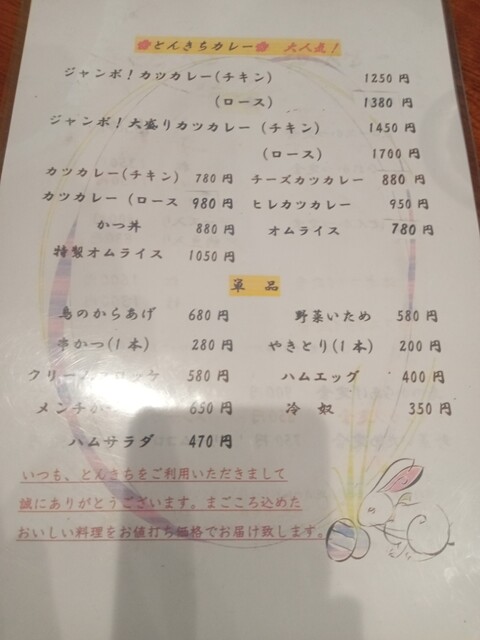 とんきちカレー 大人気!
ジャンボ!カツカレー(チキン) 1250円
(ロース) 1380円
ジャンボ!大盛りカツカレー(チキン) 1450円
(ロース) 1700円
カツカレー(チキン) 780円 チーズカツカレー 880円
カツカレー(ロース 980円 ヒレカツカレー 950円
かつ丼 880円 オムライス 780円
特製オムライス 1050円
単品
鳥のからあげ 680円 野菜いため 580円
串かつ(1本) 280円 やきとり(1本) 200円
クリームコロッケ 580円 ハムエッグ 400円
メンチか 650円 冷奴 350円
ハムサラダ 470円
いつも、とんきちをご利用いただきまして
誠にありがとうございます。まごころ込めた
おいしい料理をお値打ち価格でお届け致します。